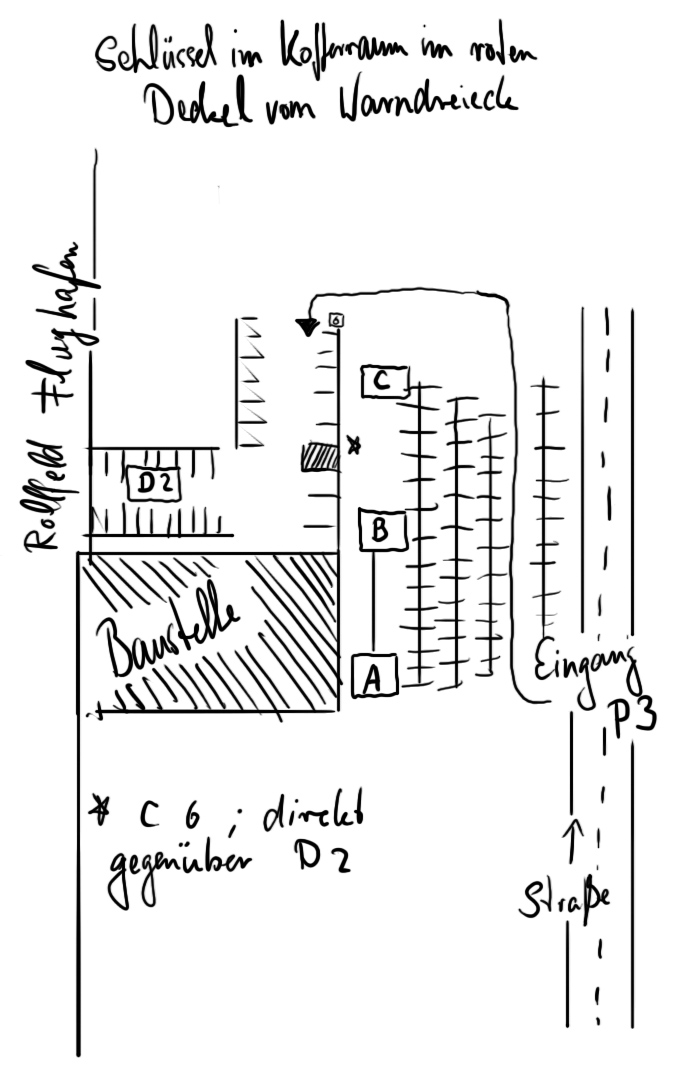 Schlüssel im Kofferraum im roten
Deckel vom Warndreieck
Rollfeld Flughafen
6
C
D2
B
Baustelle
A
Eingang
P3
* C 6 ; direkt
gegenüber D2
Straße